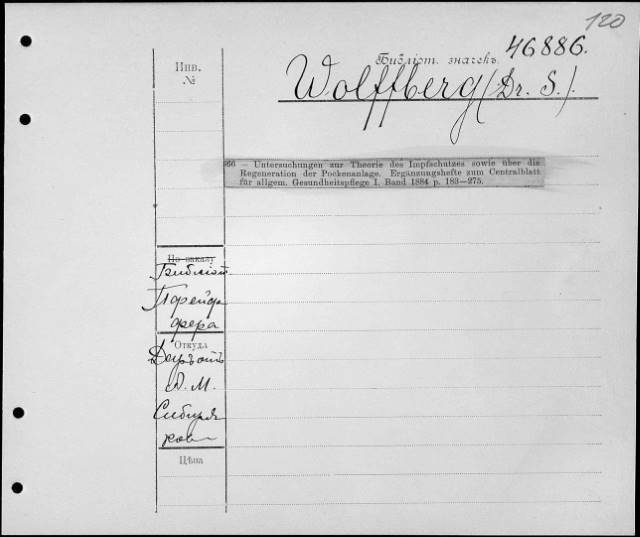 120
Инв.
№
Библіот. значекъ
46886.
Wolffberg (Dr. S.).
— Untersuchungen zur Theorie des Impfschutzes sowie über die
Regeneration der Pockenanlage. Ergänzungshefte zum Centralblatt
für allgem. Gesundheitspflege I. Band 1884 p. 183—275.
По заказу
Библіот
Пфейф
фера
Откуда
Даръ отъ
А. М.
Сибиря
кова
Цѣна